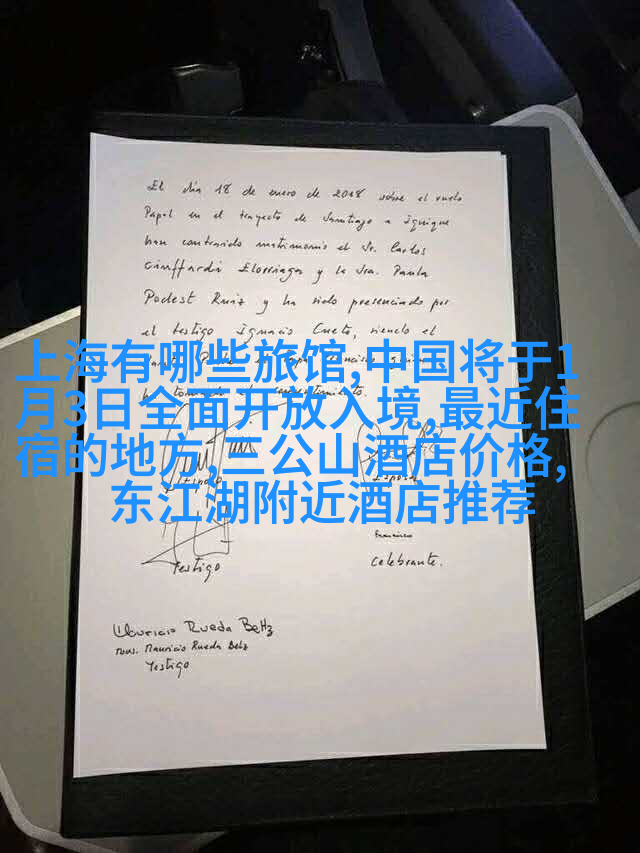 El día 18 de enero de 2018 sobre el vuelo
Papal en el trayecto de Santiago a Iquique
han contraido matrimonio el Sr. Carlos
Ciuffardi Elorriaga y la Sra. Paula
Podest Ruiz y ha sido presenciado por
el testigo Ignacio Cueto, siendo el
上海有哪些旅馆,中国将于1
月3日全面开放入境,最近住
宿的地方,三公山酒店价格,
东江湖附近酒店推荐
Esposa
Franciscus
Testigo
Celebrante.
Mauricio Rueda Beltz
Mons. Mauricio Rueda Beltz
Testigo